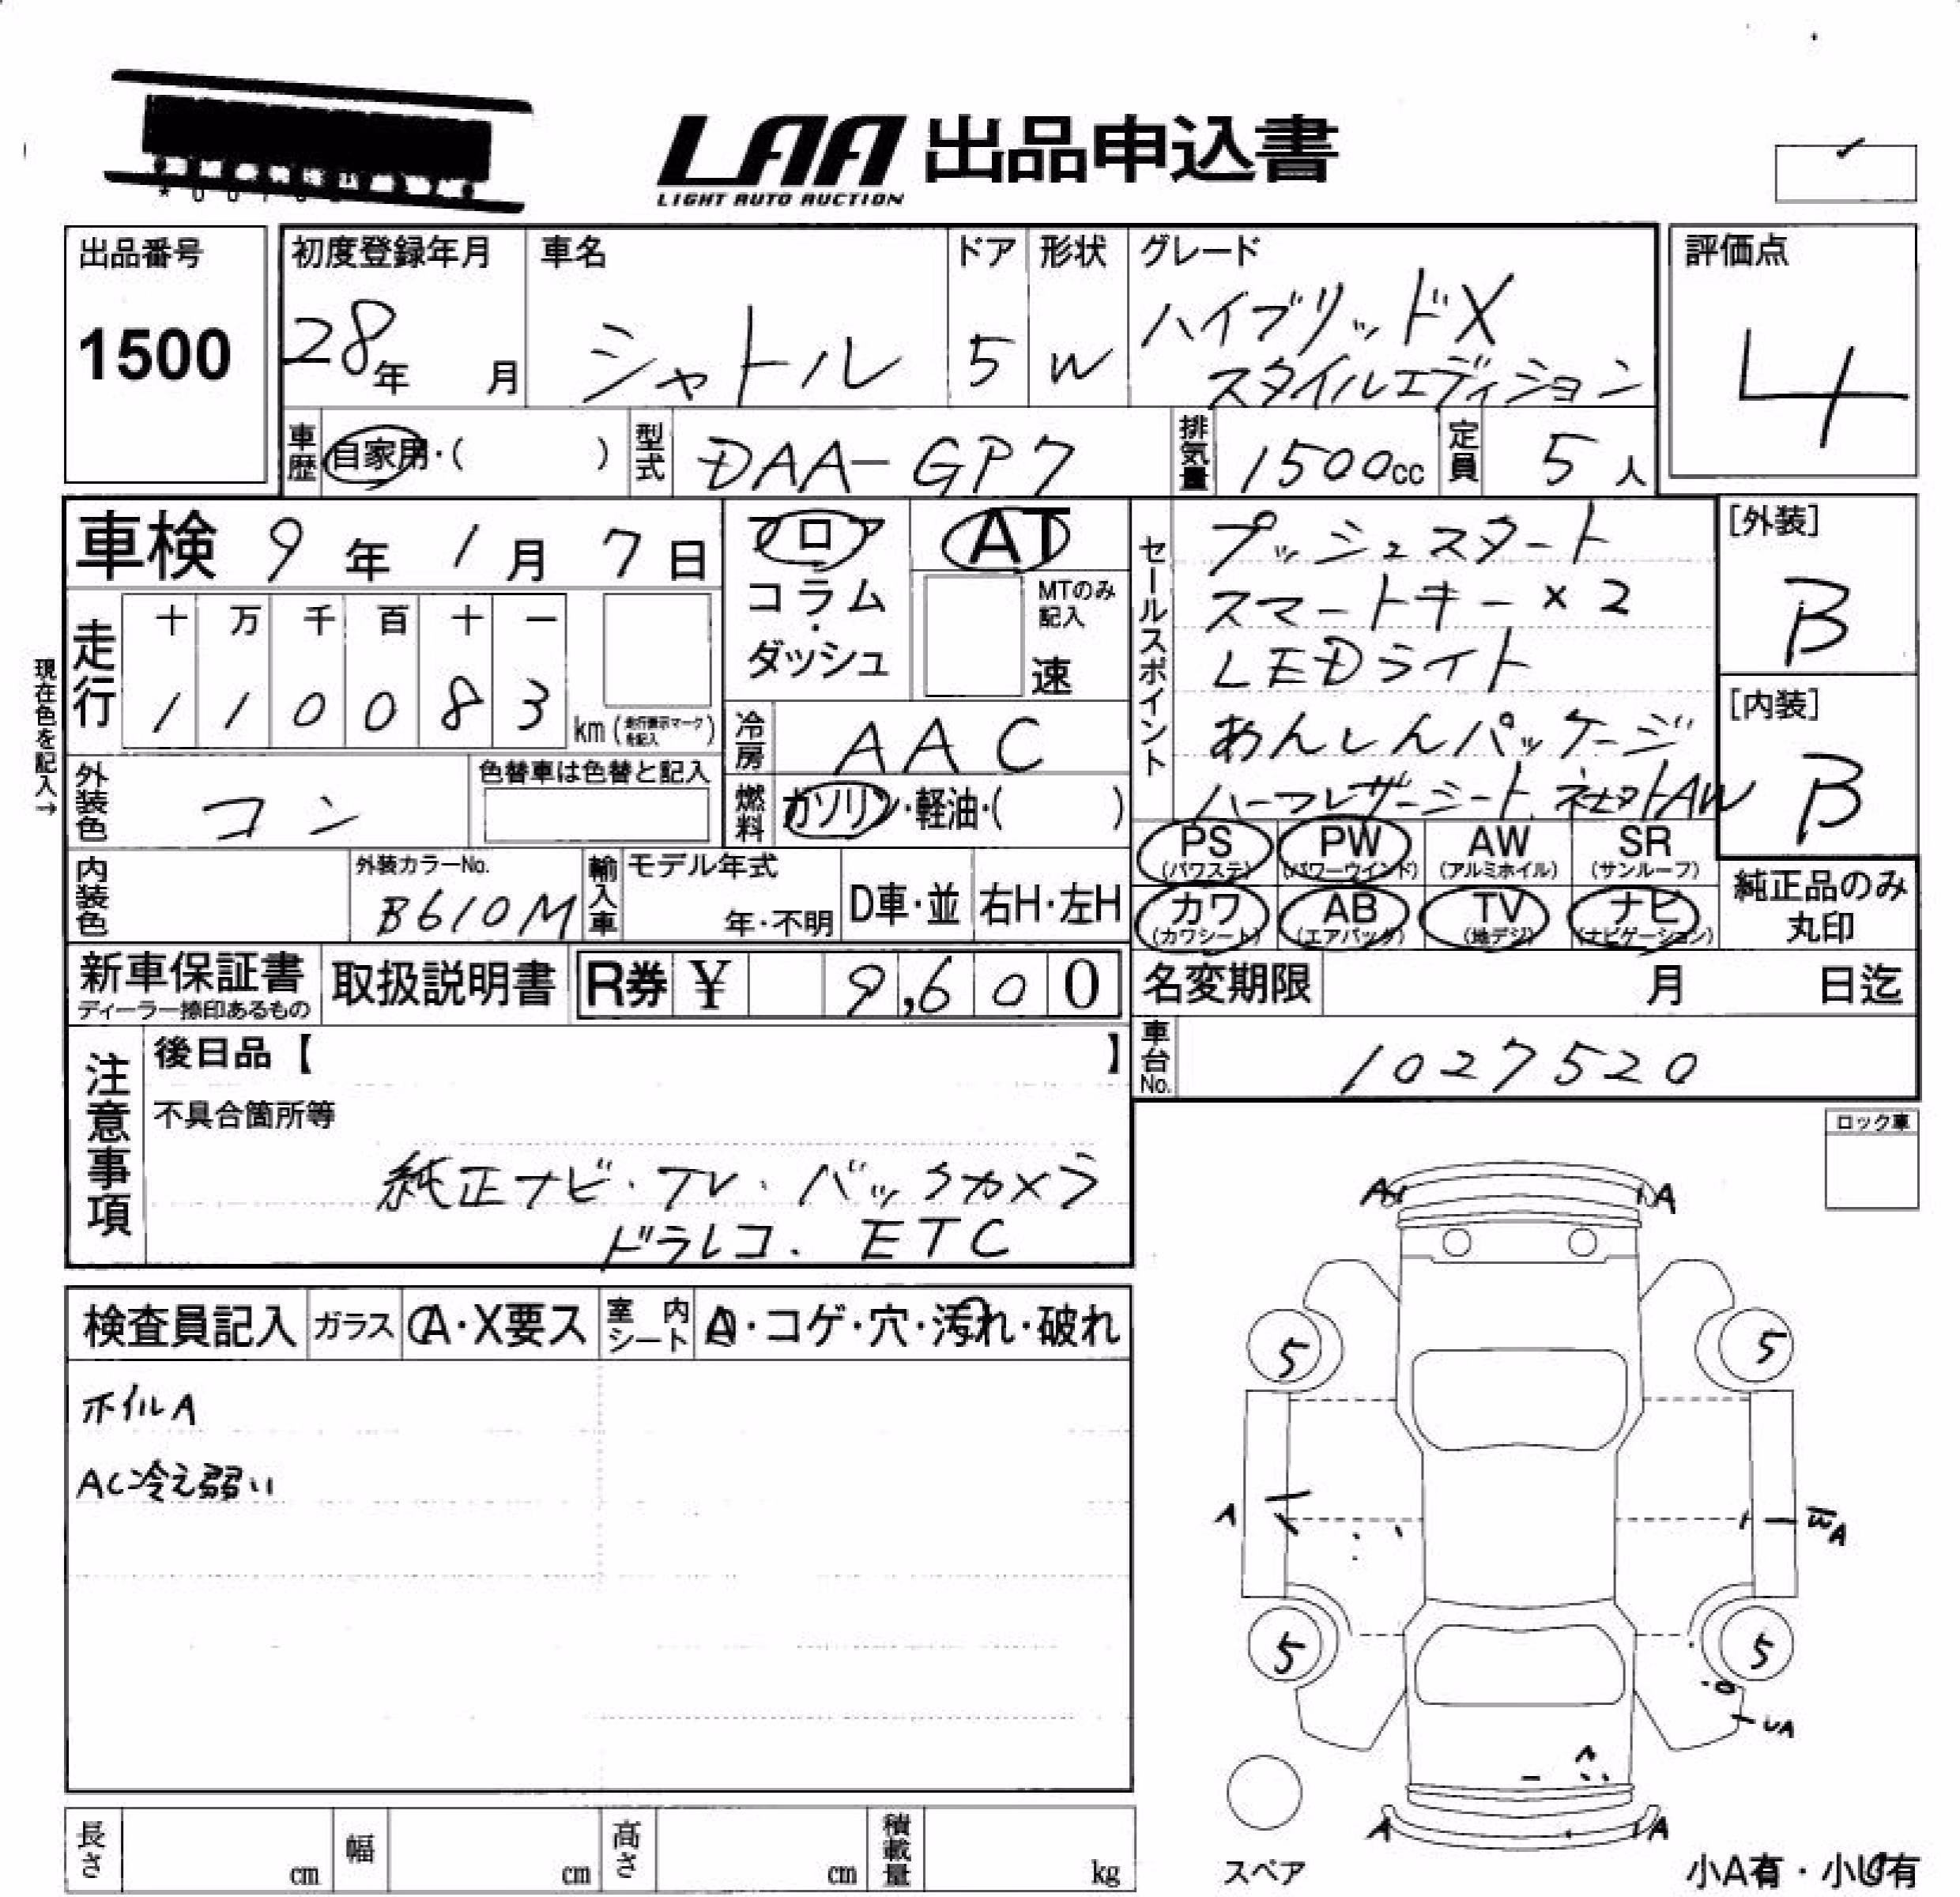 LAA 出品申込書
LIGHT AUTO AUCTION
出品番号
1500
初度登録年月
28年 月
車名
シャトル
ドア
5
形状
W
グレード
ハイブリッドX
スタイルエディション
評価点
4
車歴
自家用・( )
型式
DAA-GP7
排気量
1500cc
定員
5人
車検 9年 1月 7日
フロア
コラム
・
ダッシュ
AT
MTのみ
記入
速
セールスポイント
プッシュスタート
スマートキー×2
LEDライト
あんしんパッケージ
ハーフレザーシート、社外AW
[外装]
B
[内装]
B
現在色を記入→
走行
十 万 千 百 十 一
1 1 0 0 8 3
km(走行表示マークを記入)
冷房
AAC
外装色
コン
色替車は色替と記入
燃料
ガソリン・軽油・( )
PS
(パワステ)
PW
(パワーウインド)
AW
(アルミホイル)
SR
(サンルーフ)
カワ
(カワシート)
AB
(エアバック)
TV
(地デジ)
ナビ
(ナビゲーション)
純正品のみ
丸印
内装色
外装カラーNo.
B610M
輸入車
モデル年式
年・不明
D車・並
右H・左H
新車保証書
ディーラー捺印あるもの
取扱説明書
R券 ¥ 9,600
名変期限 月 日迄
車台No.
1027520
注意事項
後日品【 】
不具合箇所等
純正ナビ・TV・バックカメラ
ドラレコ. ETC
ロック車
検査員記入
ガラス
A・X要ス
室内シート
A・コゲ・穴・汚れ・破れ
ホイルA
AC冷え弱い
A A
5 5
A
WA
5 5
UA
A A
スペア
小A有・小U有
長さ cm
幅 cm
高さ cm
積載量 kg